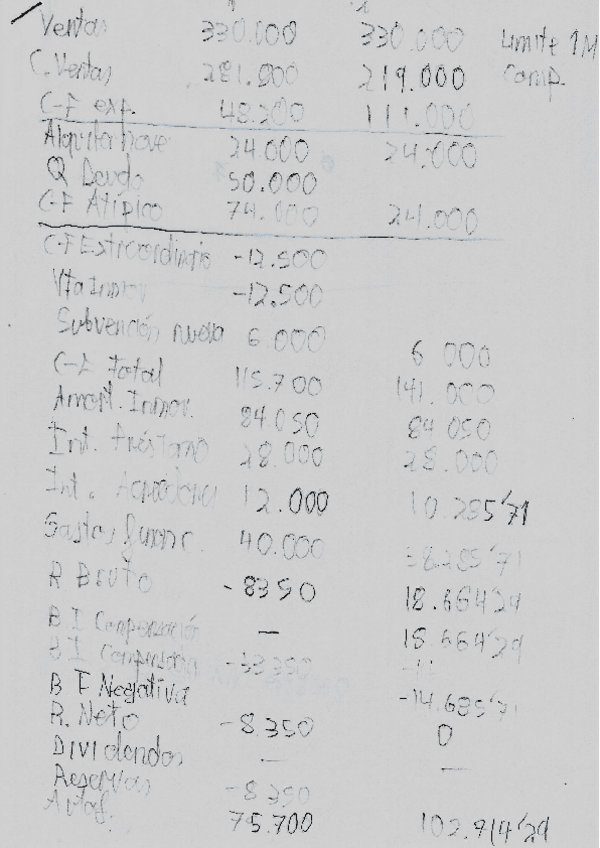 Ventas 330.000 330.000 Limite 1M
C. Ventas 281.800 219.000 Comp.
C-F exp. 48.200 111.000
Alquiler nave 24.000 24.000
Q Deuda 50.000
C-F Atípico 74.000 24.000
C-F Extraordinario -12.500
Vta Inmov -12.500
Subvención nueva 6.000 6 000
C-F Total 115.700 141.000
Amort. Inmov. 84.050 84 050
Int. Préstamo 28.000 28.000
Int. 12.000 10.285'71
Gastos financ. 40.000 38.285'71
R Bruto -8350 18.664'29
B I Compensación — 18 664'29
B I
B I Negativa -14.685'71
R. Neto -8.350 0
Dividendos — —
Reservas -8.350
75.700 102.714'29